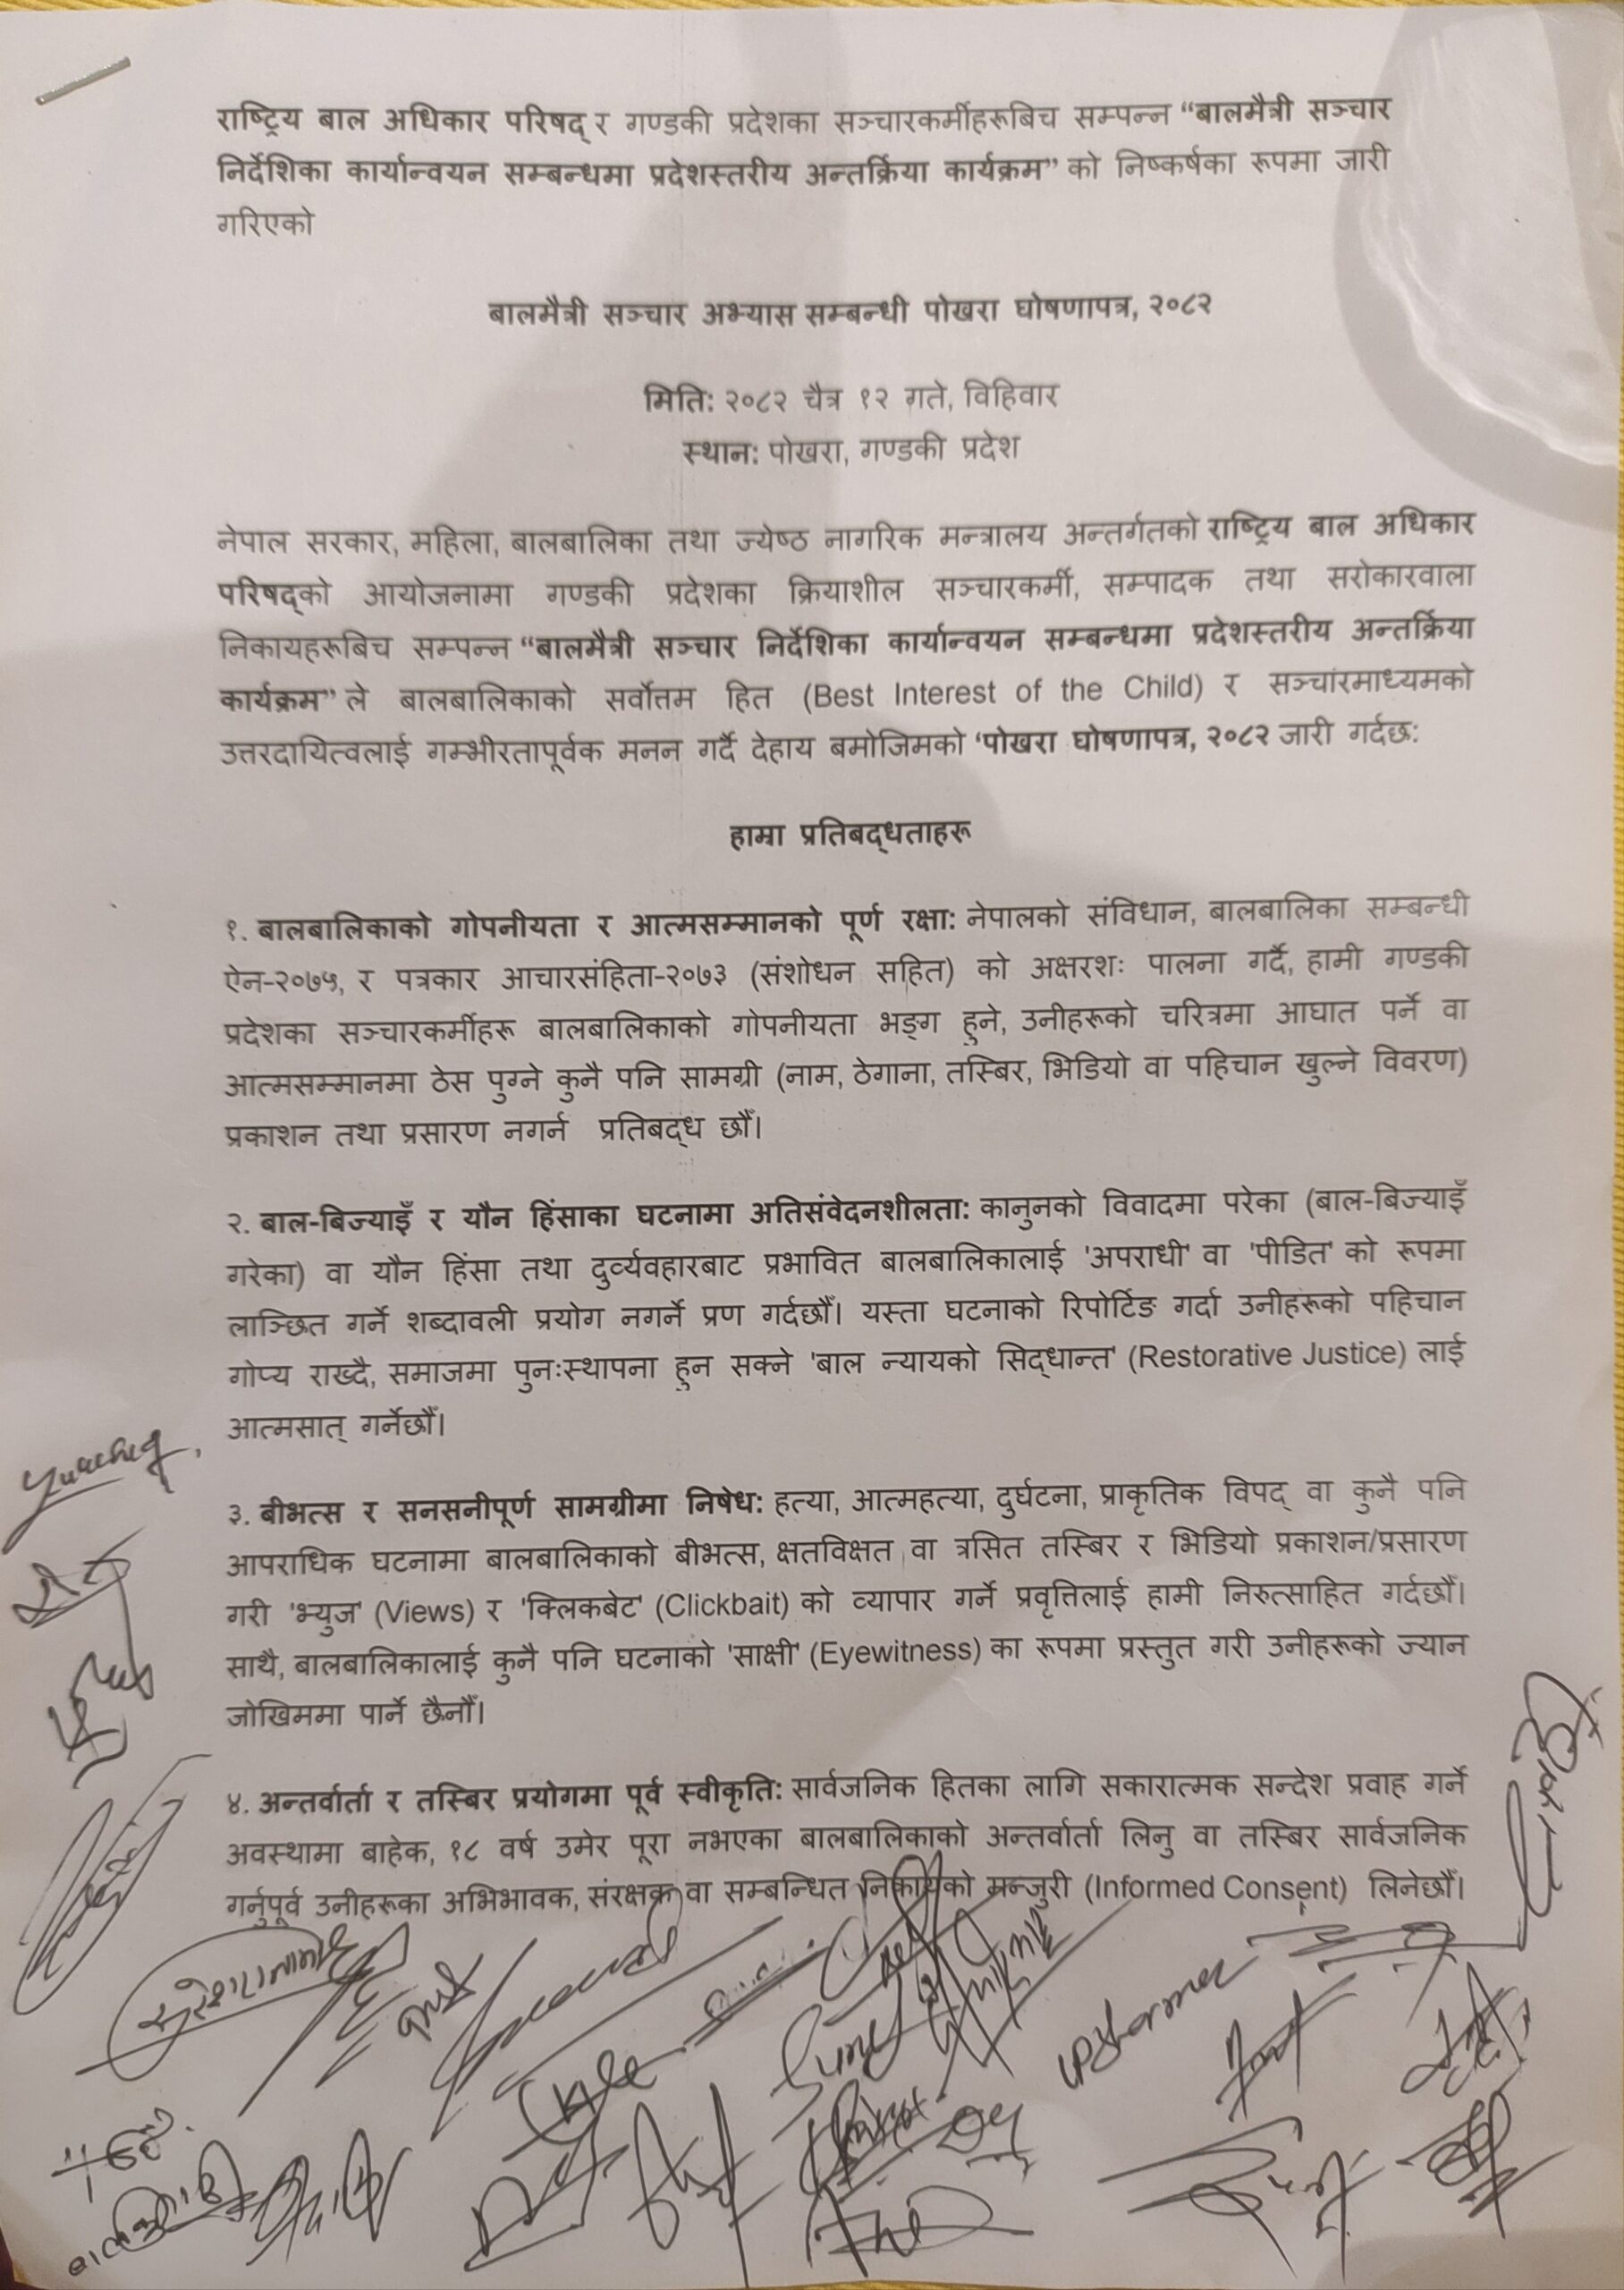 राष्ट्रिय बाल अधिकार परिषद् र गण्डकी प्रदेशका सञ्चारकर्मीहरूबिच सम्पन्न “बालमैत्री सञ्चार
निर्देशिका कार्यान्वयन सम्बन्धमा प्रदेशस्तरीय अन्तर्क्रिया कार्यक्रम” को निष्कर्षका रूपमा जारी
गरिएको
बालमैत्री सञ्चार अभ्यास सम्बन्धी पोखरा घोषणापत्र, २०८२
मिति: २०८२ चैत्र १२ गते, विहिवार
स्थान: पोखरा, गण्डकी प्रदेश
नेपाल सरकार, महिला, बालबालिका तथा ज्येष्ठ नागरिक मन्त्रालय अन्तर्गतको राष्ट्रिय बाल अधिकार
परिषद्को आयोजनामा गण्डकी प्रदेशका क्रियाशील सञ्चारकर्मी, सम्पादक तथा सरोकारवाला
निकायहरूबिच सम्पन्न “बालमैत्री सञ्चार निर्देशिका कार्यान्वयन सम्बन्धमा प्रदेशस्तरीय अन्तर्क्रिया
कार्यक्रम” ले बालबालिकाको सर्वोत्तम हित (Best Interest of the Child) र सञ्चारमाध्यमको
उत्तरदायित्वलाई गम्भीरतापूर्वक मनन गर्दै देहाय बमोजिमको ‘पोखरा घोषणापत्र, २०८२ जारी गर्दछ:
हाम्रा प्रतिबद्धताहरू
१. बालबालिकाको गोपनीयता र आत्मसम्मानको पूर्ण रक्षा: नेपालको संविधान, बालबालिका सम्बन्धी
ऐन-२०७५, र पत्रकार आचारसंहिता-२०७३ (संशोधन सहित) को अक्षरशः पालना गर्दै, हामी गण्डकी
प्रदेशका सञ्चारकर्मीहरू बालबालिकाको गोपनीयता भङ्ग हुने, उनीहरूको चरित्रमा आघात पर्ने वा
आत्मसम्मानमा ठेस पुग्ने कुनै पनि सामग्री (नाम, ठेगाना, तस्बिर, भिडियो वा पहिचान खुल्ने विवरण)
प्रकाशन तथा प्रसारण नगर्न प्रतिबद्ध छौँ।
२. बाल-बिज्याइँ र यौन हिंसाका घटनामा अतिसंवेदनशीलता: कानुनको विवादमा परेका (बाल-बिज्याइँ
गरेका) वा यौन हिंसा तथा दुर्व्यवहारबाट प्रभावित बालबालिकालाई 'अपराधी' वा 'पीडित' को रूपमा
लाञ्छित गर्ने शब्दावली प्रयोग नगर्ने प्रण गर्दछौँ। यस्ता घटनाको रिपोर्टिङ गर्दा उनीहरूको पहिचान
गोप्य राख्दै, समाजमा पुनःस्थापना हुन सक्ने 'बाल न्यायको सिद्धान्त' (Restorative Justice) लाई
आत्मसात् गर्नेछौँ।
३. बीभत्स र सनसनीपूर्ण सामग्रीमा निषेध: हत्या, आत्महत्या, दुर्घटना, प्राकृतिक विपद् वा कुनै पनि
आपराधिक घटनामा बालबालिकाको बीभत्स, क्षतविक्षत वा त्रसित तस्बिर र भिडियो प्रकाशन/प्रसारण
गरी 'भ्युज' (Views) र 'क्लिकबेट' (Clickbait) को व्यापार गर्ने प्रवृत्तिलाई हामी निरुत्साहित गर्दछौँ।
साथै, बालबालिकालाई कुनै पनि घटनाको 'साक्षी' (Eyewitness) का रूपमा प्रस्तुत गरी उनीहरूको ज्यान
जोखिममा पार्ने छैनौँ।
४. अन्तर्वार्ता र तस्बिर प्रयोगमा पूर्व स्वीकृति: सार्वजनिक हितका लागि सकारात्मक सन्देश प्रवाह गर्ने
अवस्थामा बाहेक, १८ वर्ष उमेर पूरा नभएका बालबालिकाको अन्तर्वार्ता लिनु वा तस्बिर सार्वजनिक
गर्नुपूर्व उनीहरूका अभिभावक, संरक्षक वा सम्बन्धित निकायको मन्जुरी (Informed Consent) लिनेछौँ।